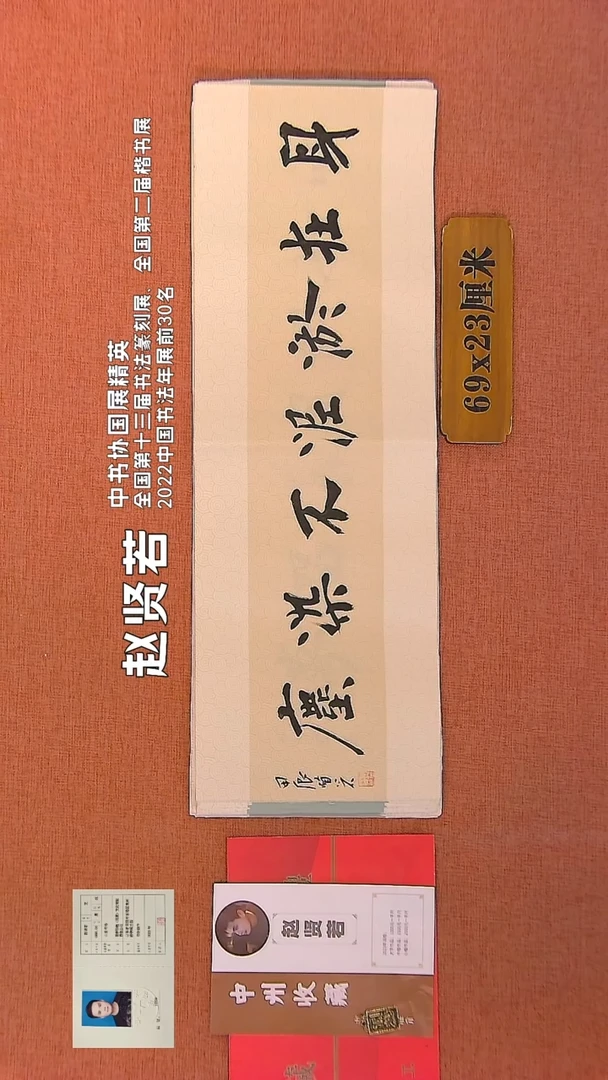 赵贤若
中书协国展精英
全国第十三届书法篆刻展、全国第二届楷书展
2022中国书法年展前30名
身在淤泥不染塵
甲辰賢若
69x23厘米
赵贤若
中州收藏